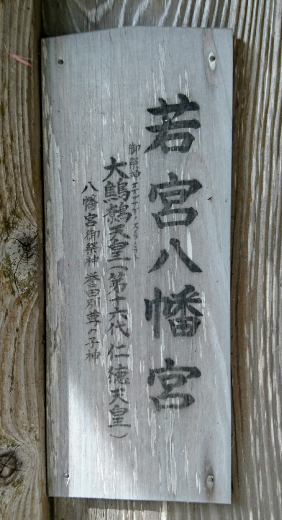 若宮八幡宮
御祭神
大鷦鷯天皇(第十六代 仁徳天皇)
八幡宮御祭神 誉田別尊の子神